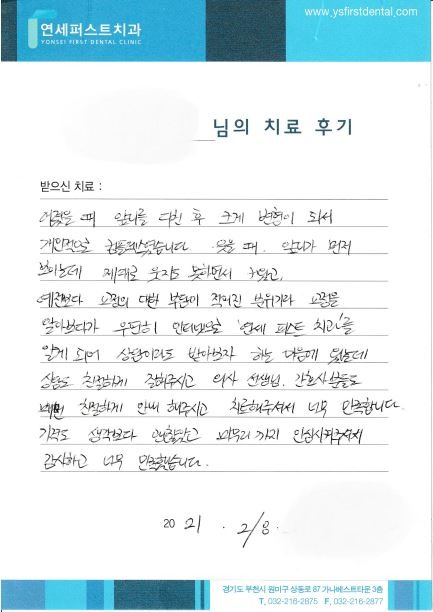 www.ysfirstdental.com
연세퍼스트치과
YONSEI FIRST DENTAL CLINIC
님의 치료 후기
받으신 치료 :
어렸을 때 앞니를 다친 후 크게 변형이 되서
개인적으로 컴플렉스였습니다. 웃을 때. 앞니가 먼저
보이는데 제대로 웃지도 못하면서 커왔고,
예전보다 교정의 대한 부담이 적어진 분위기라 교정을
알아보다가 우연히 인터넷으로 '연세 퍼스트 치과'를
알게 되어 상담이라도 받아보자 하는 마음에 왔는데
상담도 친절하게 잘해주시고 의사 선생님, 간호사분들도
매번 친절하게 안내 해주시고 치료해주셔서 너무 만족합니다.
기간도 생각보다 괜찮았고 마무리까지 안심시켜주셔서
감사하고 너무 만족했습니다.
20 21 . 2/8 .
경기도 부천시 원미구 상동로 87 가나베스트타운 3층
T. 032-216-2875 F. 032-216-2877